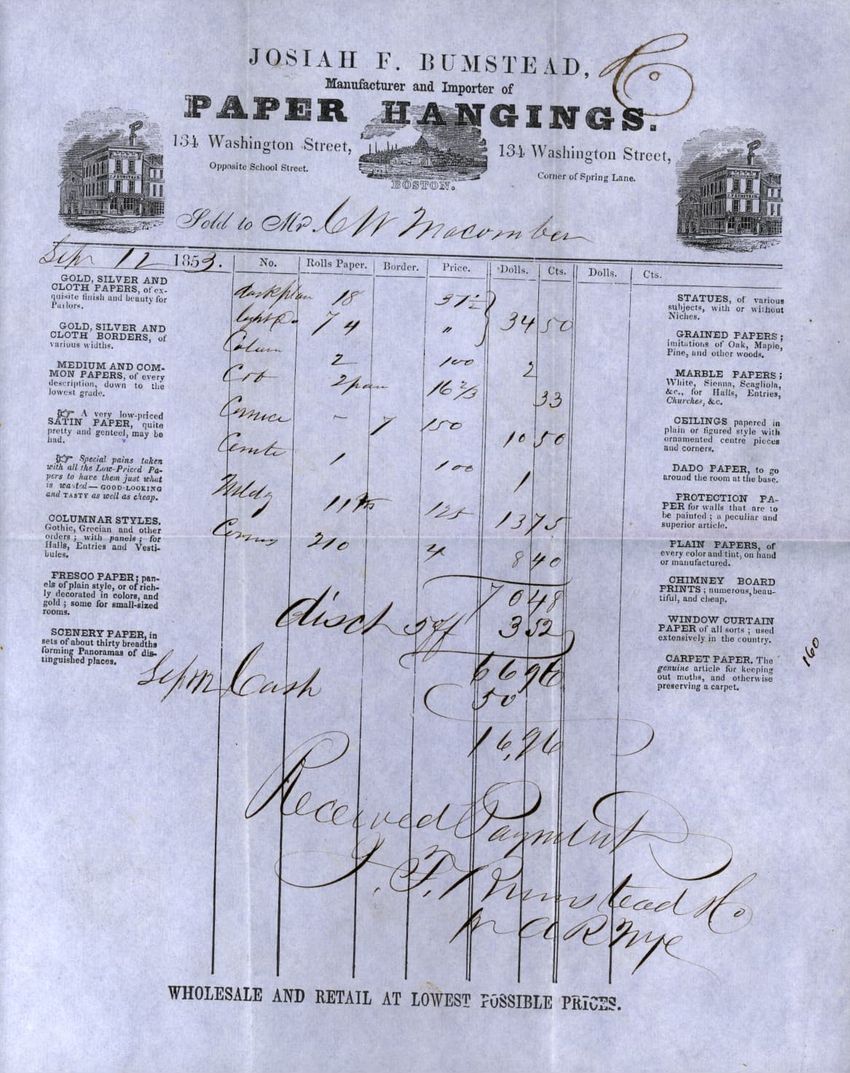 JOSIAH F. BUMSTEAD, & Co
Manufacturer and Importer of
PAPER HANGINGS.
134 Washington Street,
Opposite School Street.
BOSTON.
134 Washington Street,
Corner of Spring Lane.
Sold to Mr. C W Macomber
Sep 12 1853.
No. Rolls Paper. Border. Price. Dolls. Cts. Dolls. Cts.
dark plain 18 37½
light Do 74 " 34 50
Colum 2 100 2
2 pair 16 2/3 33
Cornice - 7 150 10 50
Centre 1 100 1
Mldg 11 125 13 75
210 4 8 40
70 48
disct 5 off 3 52
66 96
Sep 12 Cash 50
16,96
Received Payment
J. F. Bumstead & Co
A R Nye
GOLD, SILVER AND
CLOTH PAPERS, of ex-
quisite finish and beauty for
Parlors.
GOLD, SILVER AND
CLOTH BORDERS, of
various widths.
MEDIUM AND COM-
MON PAPERS, of every
description, down to the
lowest grade.
☞ A very low-priced
SATIN PAPER, quite
pretty and genteel, may be
had.
☞ Special pains taken
with all the Low-Priced Pa-
pers to have them just what
is wanted—GOOD-LOOKING
and TASTY as well as cheap.
COLUMNAR STYLES.
Gothic, Grecian and other
orders; with panels; for
Halls, Entries and Vesti-
bules.
FRESCO PAPER; pan-
els of plain style, or of rich-
ly decorated in colors, and
gold; some for small-sized
rooms.
SCENERY PAPER, in
sets of about thirty breadths
forming Panoramas of dis-
tinguished places.
STATUES, of various
subjects, with or without
Niches.
GRAINED PAPERS;
imitations of Oak, Maple,
Pine, and other woods.
MARBLE PAPERS;
White, Sienna, Scagliola,
&c., for Halls, Entries,
Churches, &c.
CEILINGS papered in
plain or figured style with
ornamented centre pieces
and corners.
DADO PAPER, to go
around the room at the base.
PROTECTION PA-
PER for walls that are to
be painted; a peculiar and
superior article.
PLAIN PAPERS, of
every color and tint, on hand
or manufactured.
CHIMNEY BOARD
PRINTS; numerous, beau-
tiful, and cheap.
WINDOW CURTAIN
PAPER of all sorts; used
extensively in the country.
CARPET PAPER. The
genuine article for keeping
out moths, and otherwise
preserving a carpet.
160
WHOLESALE AND RETAIL AT LOWEST POSSIBLE PRICES.